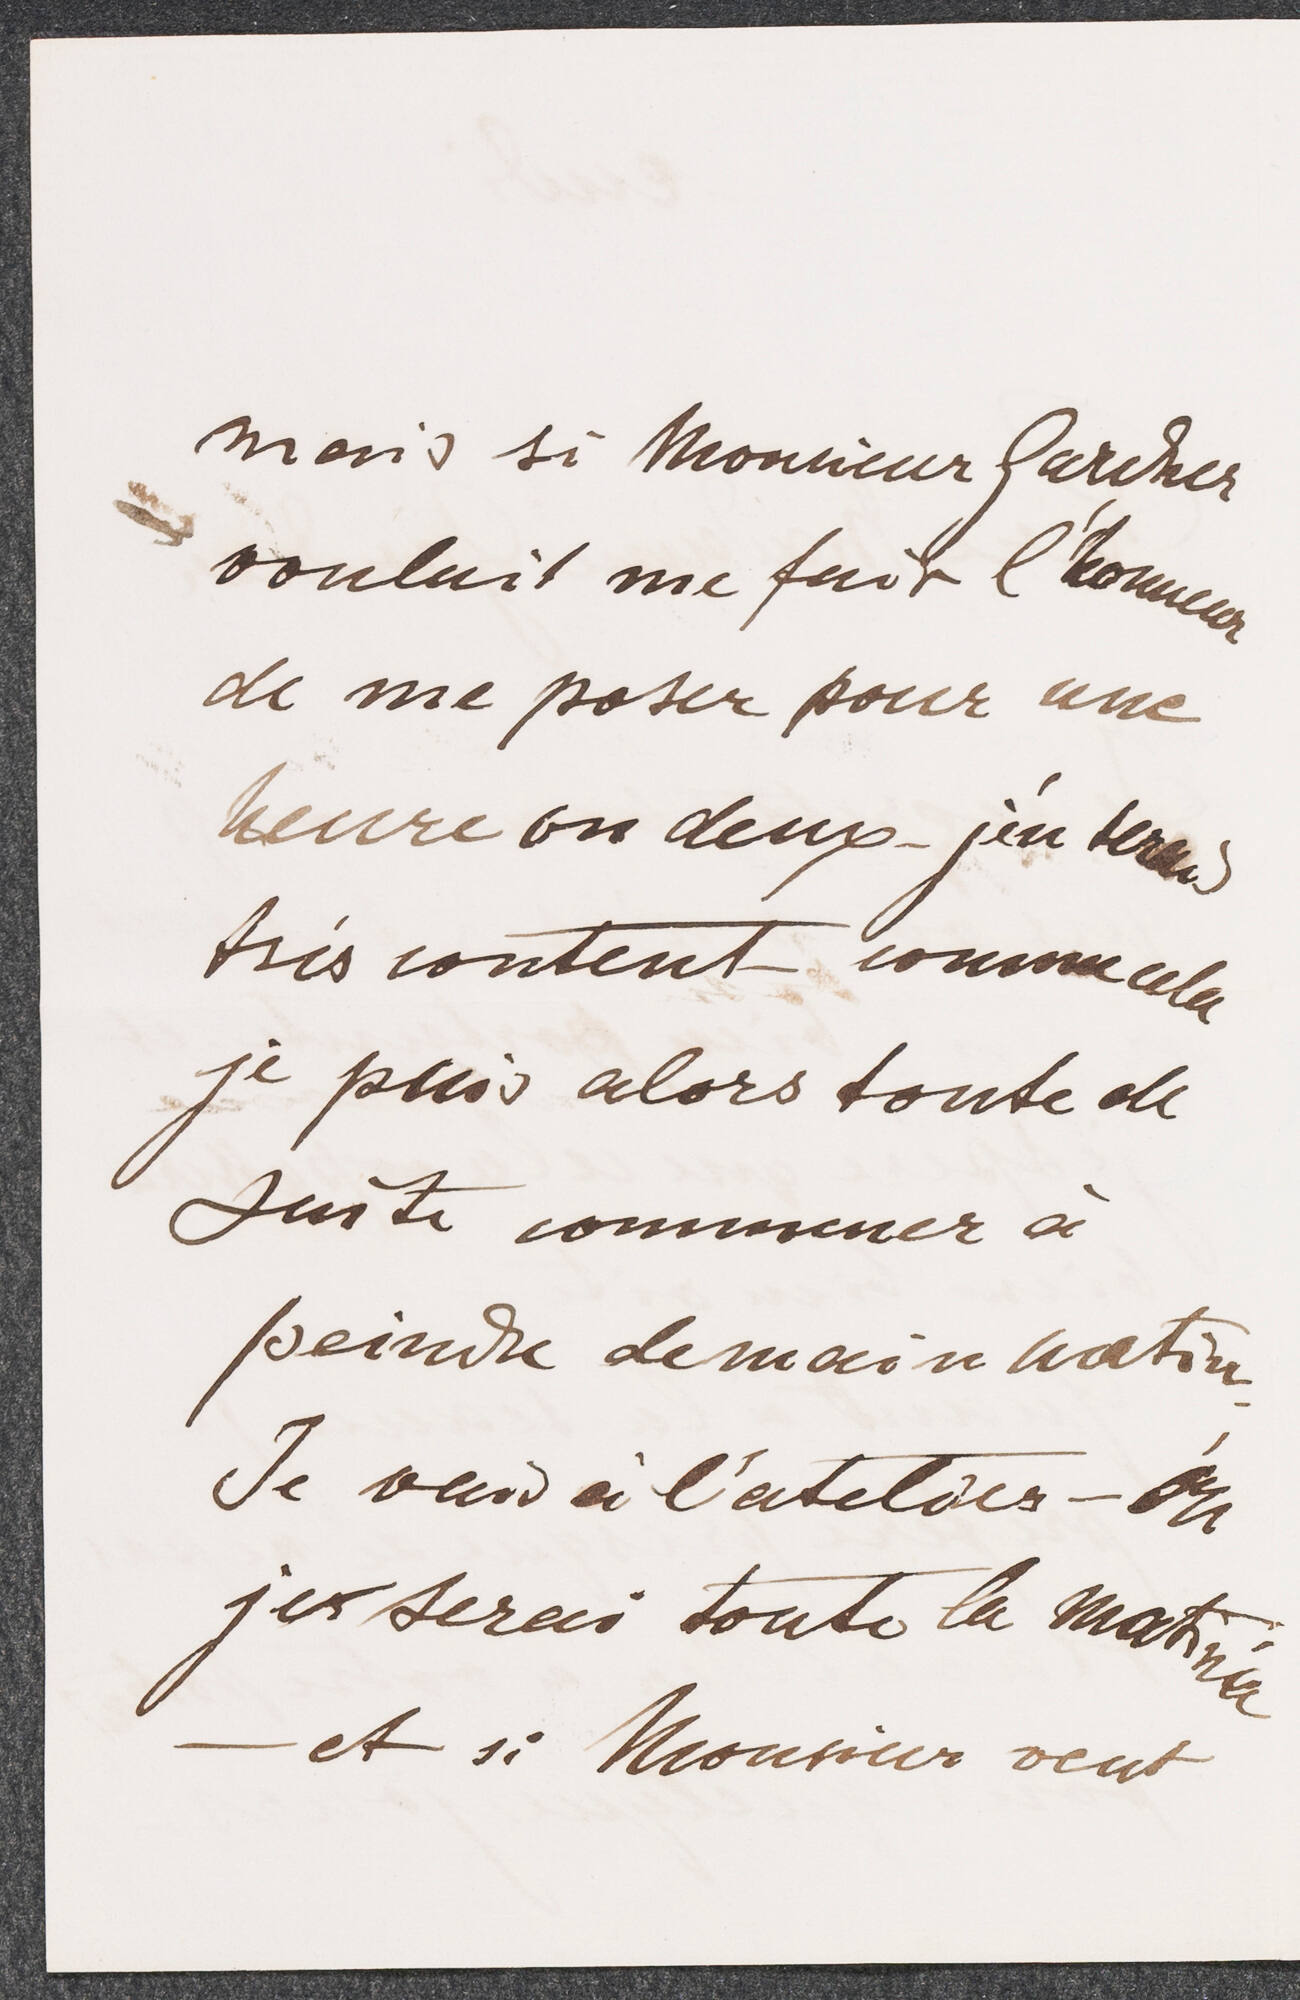 mais si Monsieur Gardner
voulait me fair l'honneur
de me poser pour une
heure ou deux - j'en serais
très content - comme cela
je puis alors toute de
suite commencer à
peindre demain matin -
Je vais à l'atelier - où
je serai toute la matinée
- et si Monsieur veut